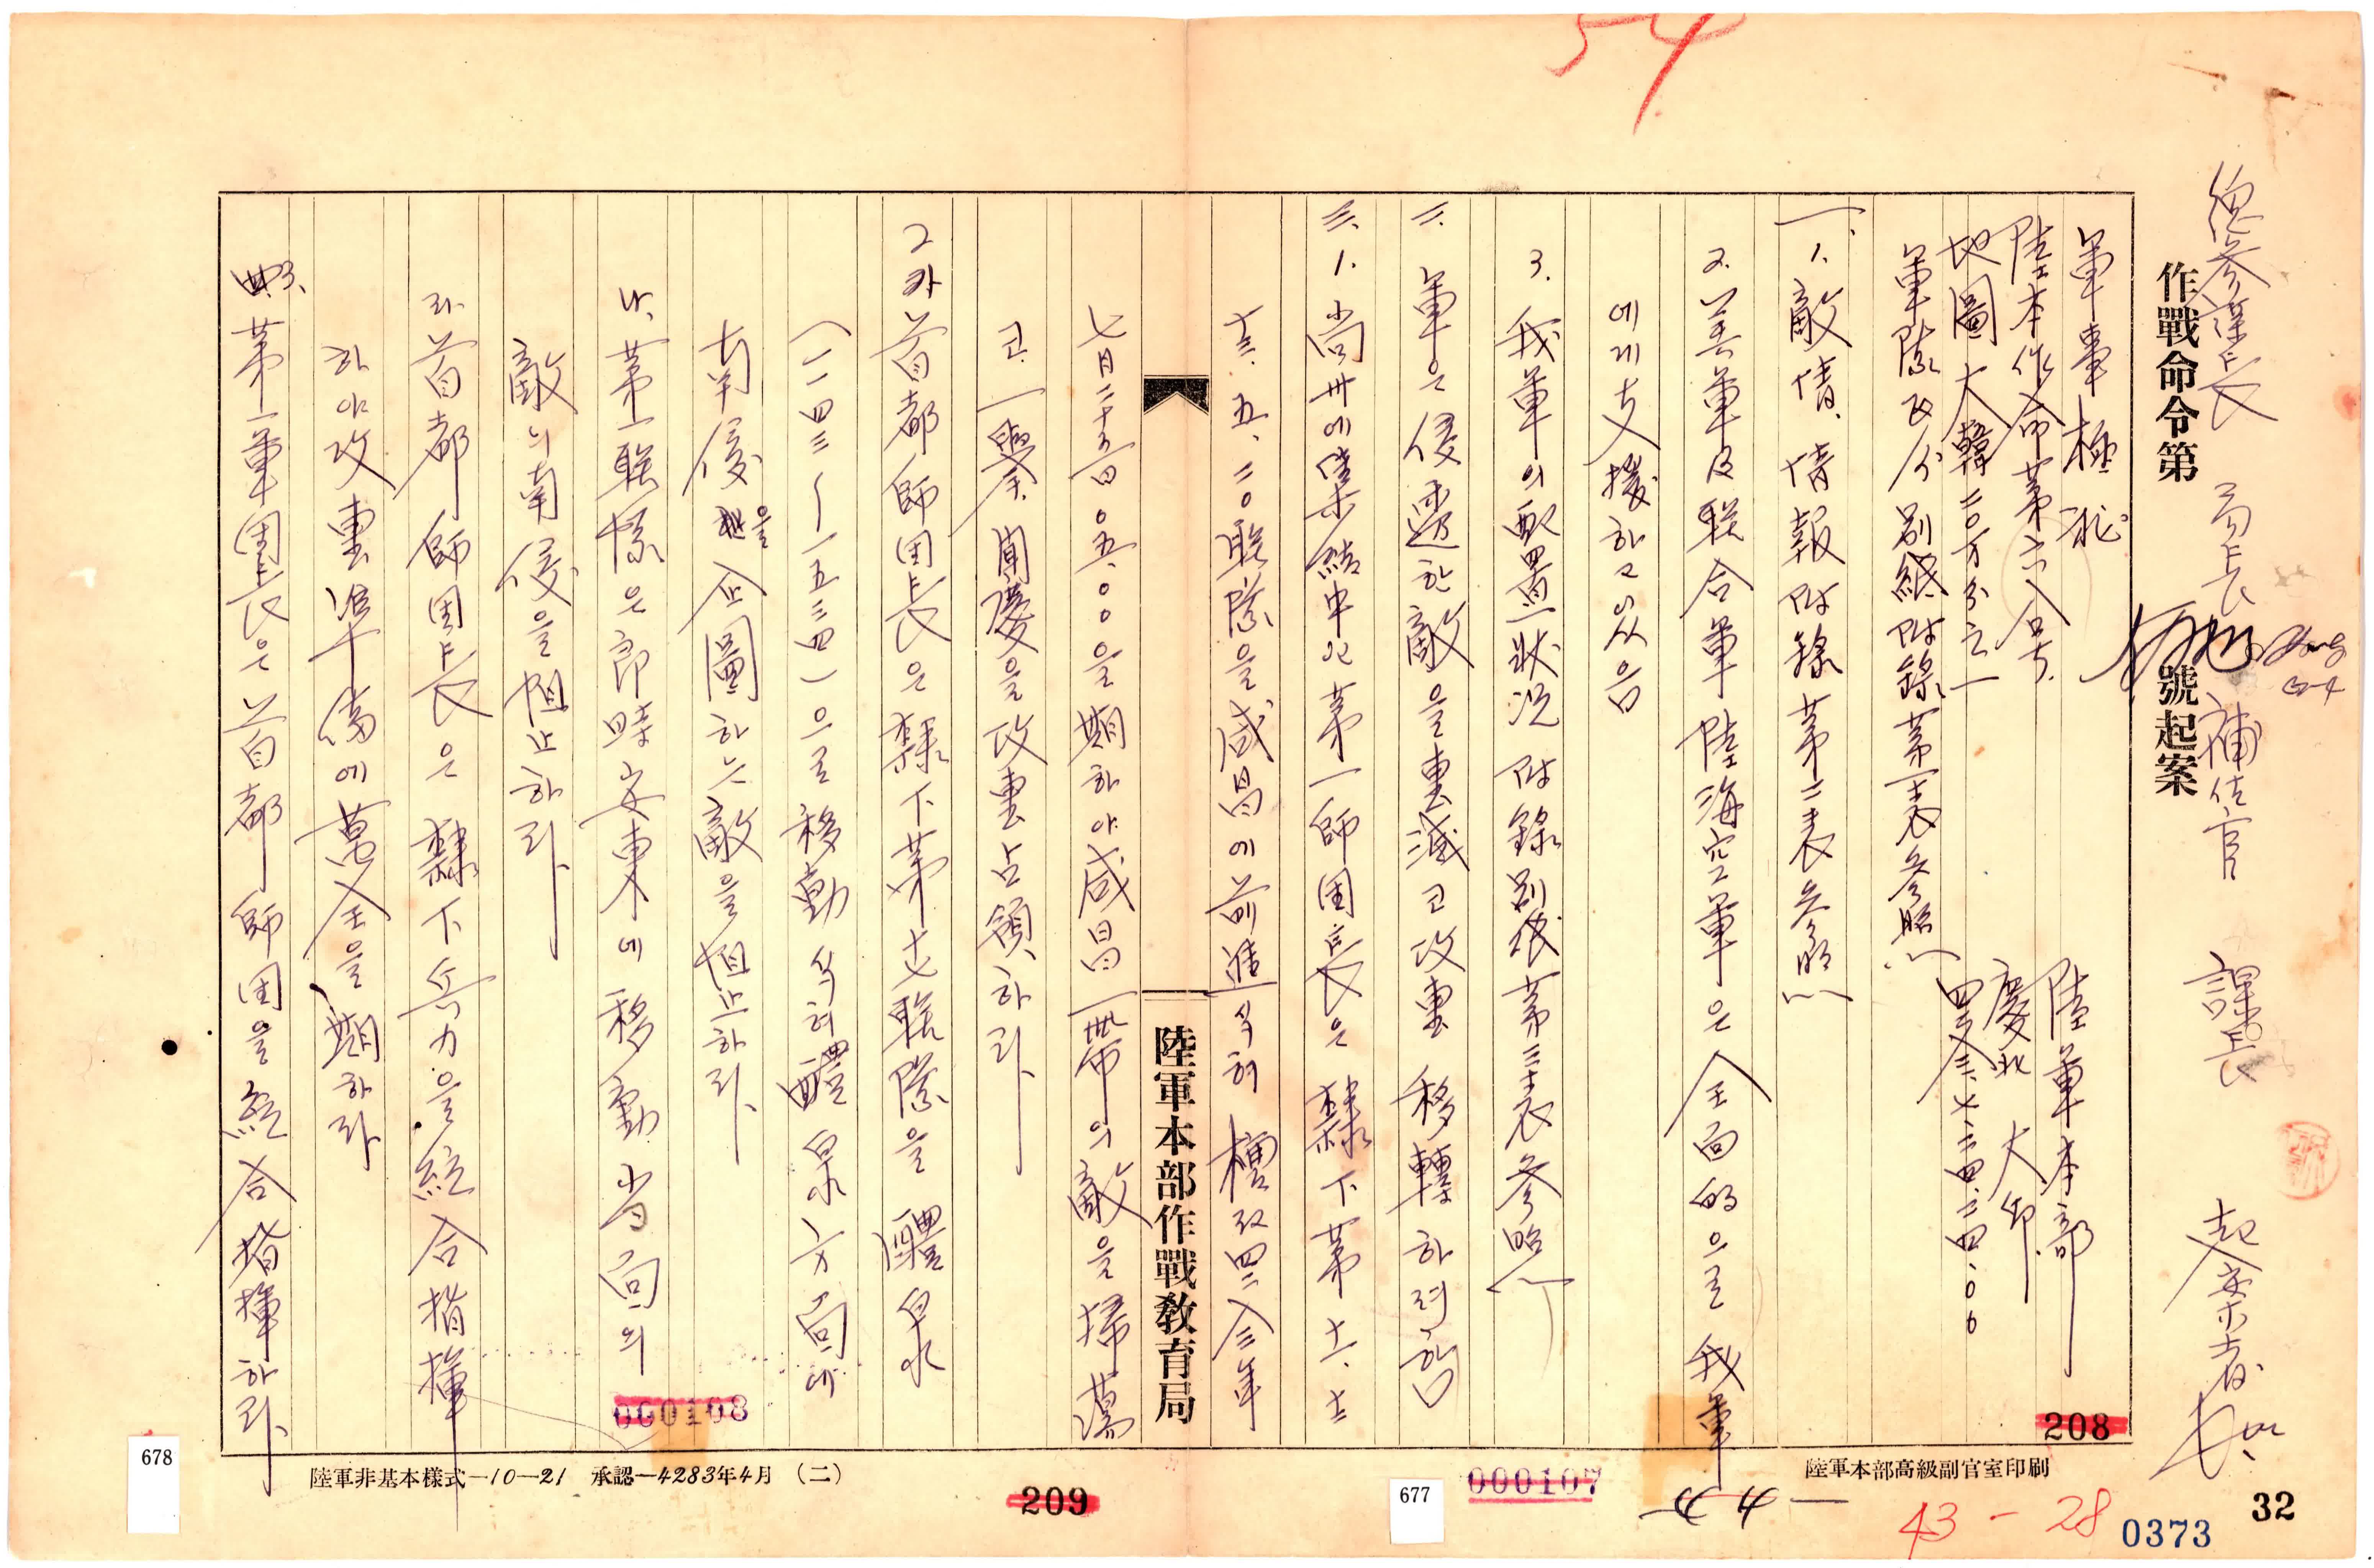 54
總參謀長 局長 補佐官 課長 起案者
作戰命令第 號起案
軍事極祕
陸軍本部
陸本作命第六八号.
慶北 大邱.
地圖大韓二0万分之一
四二八三、七、二四、二四、00
軍隊區分 別紙附錄第一表參照
一、1. 敵情、情報附錄第二表參照
2. 美軍及联合軍陸海空軍은 全面的으로 我軍
에게 支援하고있음
3. 我軍의 配置狀況 附錄別紙第三表參照
二. 軍은 侵邊한 敵을 擊滅코 攻擊移轉하려함
三. 1. 尙州에 集結中인 第一師團長은 隸下第十一、十二
十三、五、二0联隊을 咸昌에 前進식혀 檀紀四二八三年
陸軍本部作戰敎育局
七月二十五日0五.00을 期하야 咸昌一帶의 敵을 掃蕩
코. 一擧 聞慶을 攻擊占領하라.
2 가 首都師団長은 隸下第十七联隊을 醴泉
(一一四三〜一五三四)으로 移動식혀 醴泉方面에
南侵을 企圖하는 敵을 阻止하라.
나. 第一联隊은 卽時 安東에 移動 当面의
敵의 南侵을 阻止하라.
라. 首都師団長은 隸下兵力을 統合指揮
하야 攻擊準備에 萬全을 期하라
3. 第一軍団長은 首都師団을 統合指揮하라.
208
000107
000108
陸軍本部高級副官室印刷
陸軍非基本樣式—10—21 承認—4283年4月 (二)
209
677
678
44
43-28
0373
32